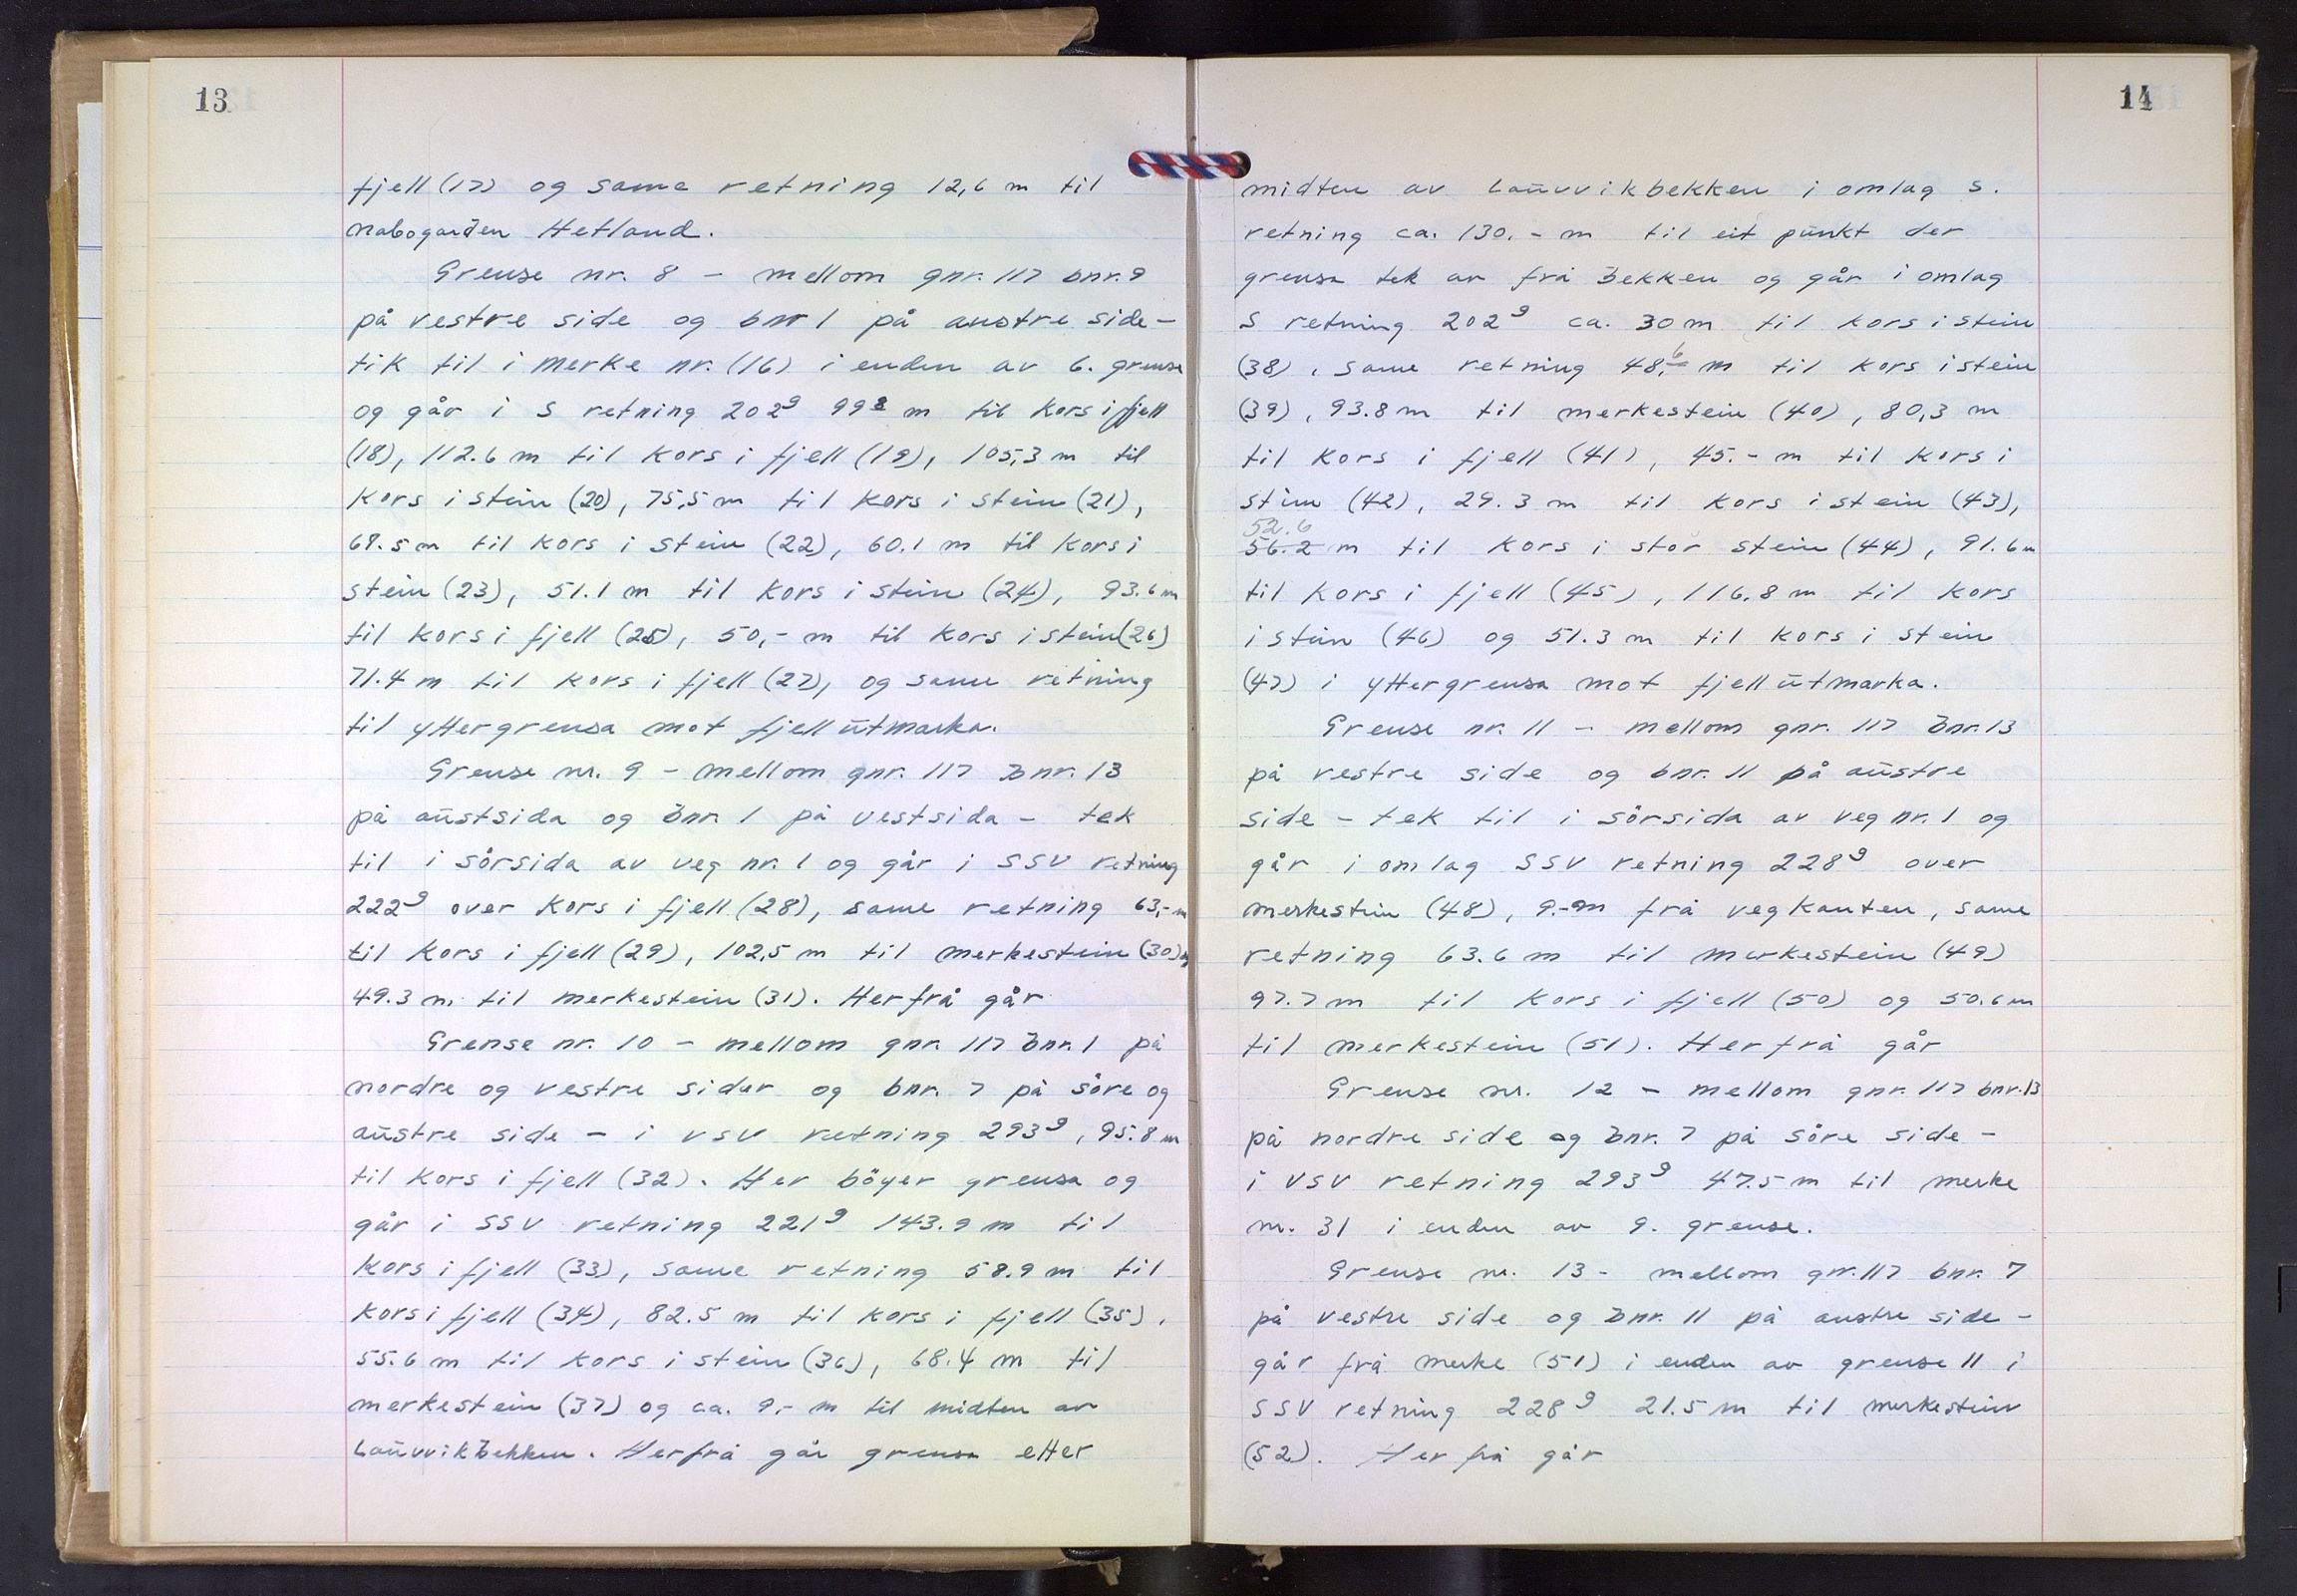 13
fjell (17) og same retning 12,6 m til
nabogarden Hetland.
Grense nr. 8 - mellom gnr. 117 bnr. 9
på vestre side og bnr 1 på austre side -
tik til i merke nr. (16) i enden av 6. grense
og går i S retning 202g 998 m til kors i fjell
(18), 112.6 m til kors i fjell (19), 105,3 m til
kors i stein (20), 75,5 m til kors i stein (21),
69.5 m til kors i stein (22), 60.1 m til kors i
stein (23), 51.1 m til kors i stein (24), 93.6 m
til kors i fjell (25), 50,- m til kors i stein (26)
71.4 m til kors i fjell (27), og same retning
til yttergrensa mot fjellutmarka.
Grense nr. 9 - mellom gnr. 117 bnr. 13
på austsida og bnr. 1 på vestsida - tek
til i sörsida av veg nr. 1 og går i SSV retning
222g over kors i fjell (28), same retning 63,- m
til kors i fjell (29), 102,5 m til merkestein (30)
49.3 m til merkestein (31). Herfrå går
Grense nr. 10 - mellom gnr. 117 bnr. 1 på
nordre og vestre sider og bnr. 7 på söre og
austre side - i VSV retning 293g, 95.8 m
til kors i fjell (32). Her böyer grensa og
går i SSV retning 221g 143.9 m til
kors i fjell (33), same retning 58.9 m til
kors i fjell (34), 82.5 m til kors i fjell (35),
55.6 m til kors i stein (36), 68.4 m til
merkestein (37) og ca. 9,- m til midten av
Lauvvikbekken. Herfrå går grensa etter
14
midten av Lauvvikbekken i omlag S.
retning ca. 130.- m til eit punkt der
grensa tek av frå bekken og går i omlag
S retning 202g ca. 30 m til kors i stein
(38), same retning 48,6 m til kors i stein
(39), 93.8 m til merkestein (40), 80,3 m
til kors i fjell (41), 45.- m til kors i
stein (42), 29.3 m til kors i stein (43),
52.6
56.2 m til kors i stor stein (44), 91.6 m
til kors i fjell (45), 116.8 m til kors
i stein (46) og 51.3 m til kors i stein
(47) i yttergrensa mot fjellutmarka.
Grense nr. 11 - mellom gnr. 117 bnr. 13
på vestre side og bnr. 11 på austre
side - tek til i sörsida av veg nr. 1 og
går i omlag SSV retning 228g over
merkestein (48), 9.- m frå vegkanten, same
retning 63.6 m til merkestein (49)
97.7 m til kors i fjell (50) og 50.6 m
til merkestein (51). Herfrå går
Grense nr. 12 - mellom gnr. 117 bnr. 13
på nordre side og bnr. 7 på söre side -
i VSV retning 293g 47.5 m til merke
nr. 31 i enden av 9. grense.
Grense nr. 13 - mellom gnr. 117 bnr. 7
på vestre side og bnr. 11 på austre side -
går frå merke (51) i enden av grense 11 i
SSV retning 228g 21.5 m til merkestein
(52). Herfrå går